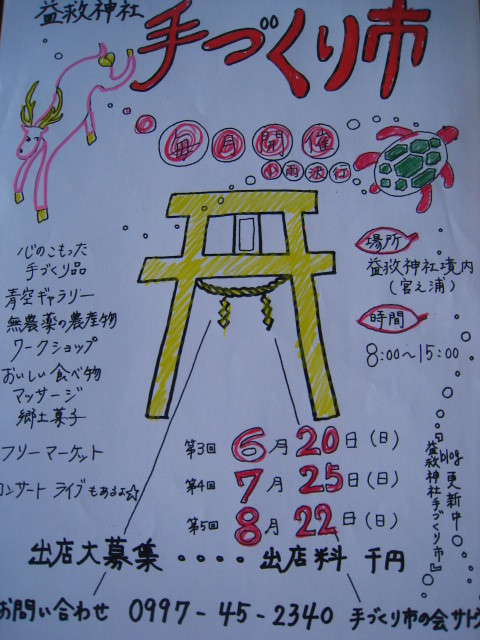 益救神社
手づくり市
毎月開催
小雨決行
場所
益救神社境内
(宮之浦)
時間
8:00~15:00
心のこもった
手づくり品
青空ギャラリー
無農薬の農産物
ワークショップ
おいしい食べ物
マッサージ
郷土菓子
フリーマーケット
コンサートライブもあるよ☆
第3回 6月20日(日)
第4回 7月25日(日)
第5回 8月22日(日)
blog 更新中
『益救神社手づくり市』
出店大募集‥‥出店料 千円
お問い合わせ 0997-45-2340 手づくり市の会サトウ